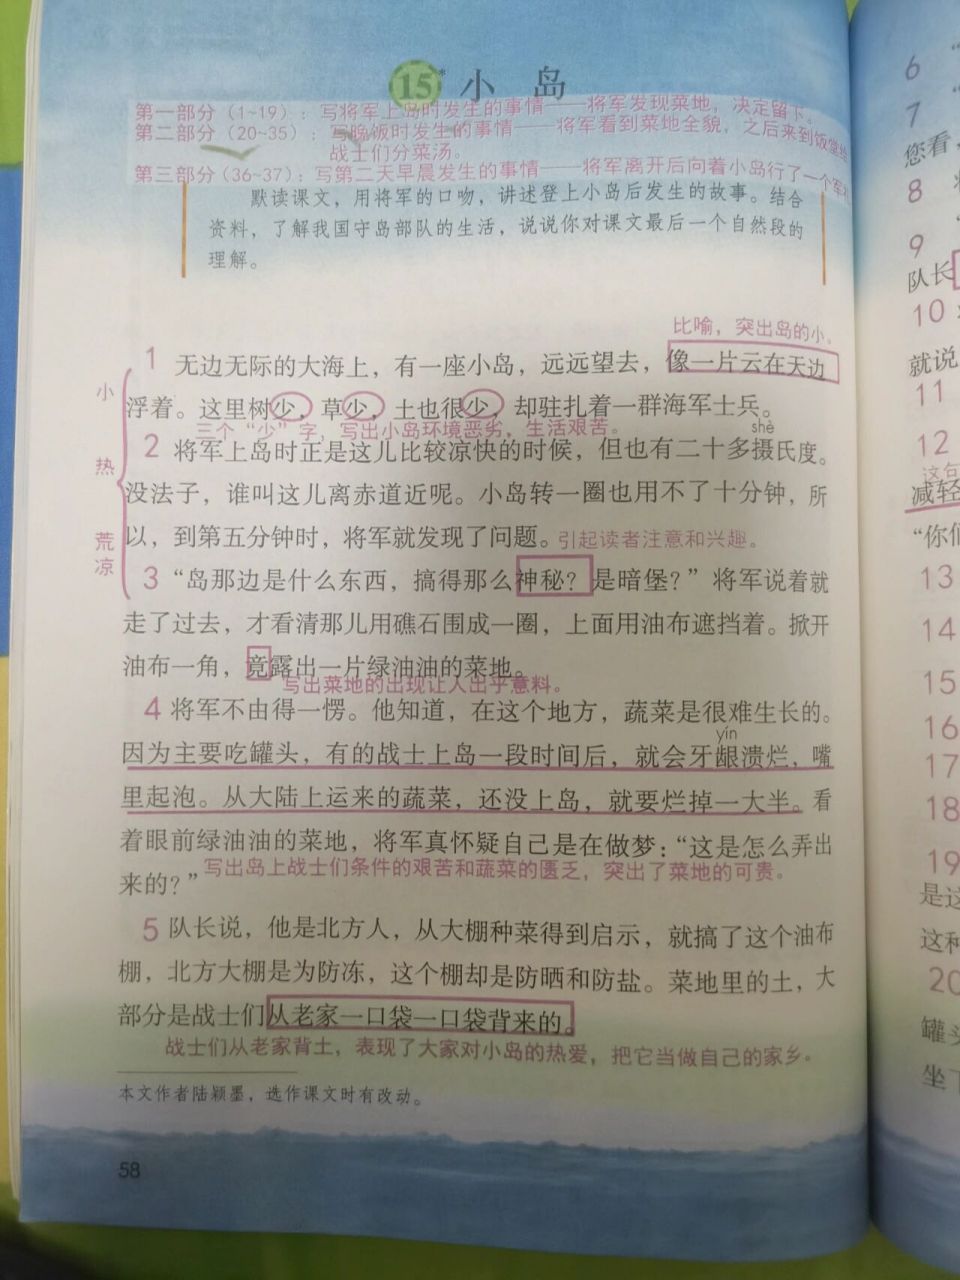 15* 小 岛
第一部分（1~19）：写将军上岛时发生的事情——将军发现菜地，决定留下。
第二部分（20~35）：写晚饭时发生的事情——将军看到菜地全貌，之后来到饭堂给
战士们分菜汤。
第三部分（36~37）：写第二天早晨发生的事情——将军离开后向着小岛行了一个军礼
默读课文，用将军的口吻，讲述登上小岛后发生的故事。结合
资料，了解我国守岛部队的生活，说说你对课文最后一个自然段的
理解。
比喻，突出岛的小。
1 无边无际的大海上，有一座小岛，远远望去，像一片云在天边
小
浮着。这里树少，草少，土也很少，却驻扎着一群海军士兵。
三个“少”字，写出小岛环境恶劣，生活艰苦。
shè
2 将军上岛时正是这儿比较凉快的时候，但也有二十多摄氏度。
热
没法子，谁叫这儿离赤道近呢。小岛转一圈也用不了十分钟，所
荒
以，到第五分钟时，将军就发现了问题。引起读者注意和兴趣。
凉
3 “岛那边是什么东西，搞得那么神秘？是暗堡？”将军说着就
走了过去，才看清那儿用礁石围成一圈，上面用油布遮挡着。掀开
油布一角，竟露出一片绿油油的菜地。
写出菜地的出现让人出乎意料。
4 将军不由得一愣。他知道，在这个地方，蔬菜是很难生长的。
yín
因为主要吃罐头，有的战士上岛一段时间后，就会牙龈溃烂，嘴
里起泡。从大陆上运来的蔬菜，还没上岛，就要烂掉一大半。看
着眼前绿油油的菜地，将军真怀疑自己是在做梦：“这是怎么弄出
来的？”
写出岛上战士们条件的艰苦和蔬菜的匮乏，突出了菜地的可贵。
5 队长说，他是北方人，从大棚种菜得到启示，就搞了这个油布
棚，北方大棚是为防冻，这个棚却是防晒和防盐。菜地里的土，大
部分是战士们从老家一口袋一口袋背来的。
战士们从老家背土，表现了大家对小岛的热爱，把它当做自己的家乡。
本文作者陆颖墨，选作课文时有改动。
58
6
7
您看，
8
9
队长
10
就说
11
12
这句
减轻
“你们
13
14
15
16
17
18
19
是这
这种
20
罐头
坐下